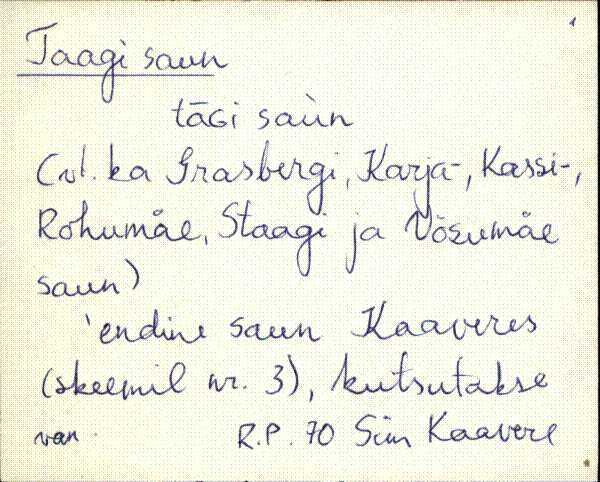 1
Taagi saun
tāGi saùn
(vt. ka Grasbergi, Karja-, Kassi-,
Rohumäe, Staagi ja Võsumäe
saun)
'endine saun Kaaveres
(skeemil nr. 3), kutsutakse
van. R.P. 70 Sim Kaavere